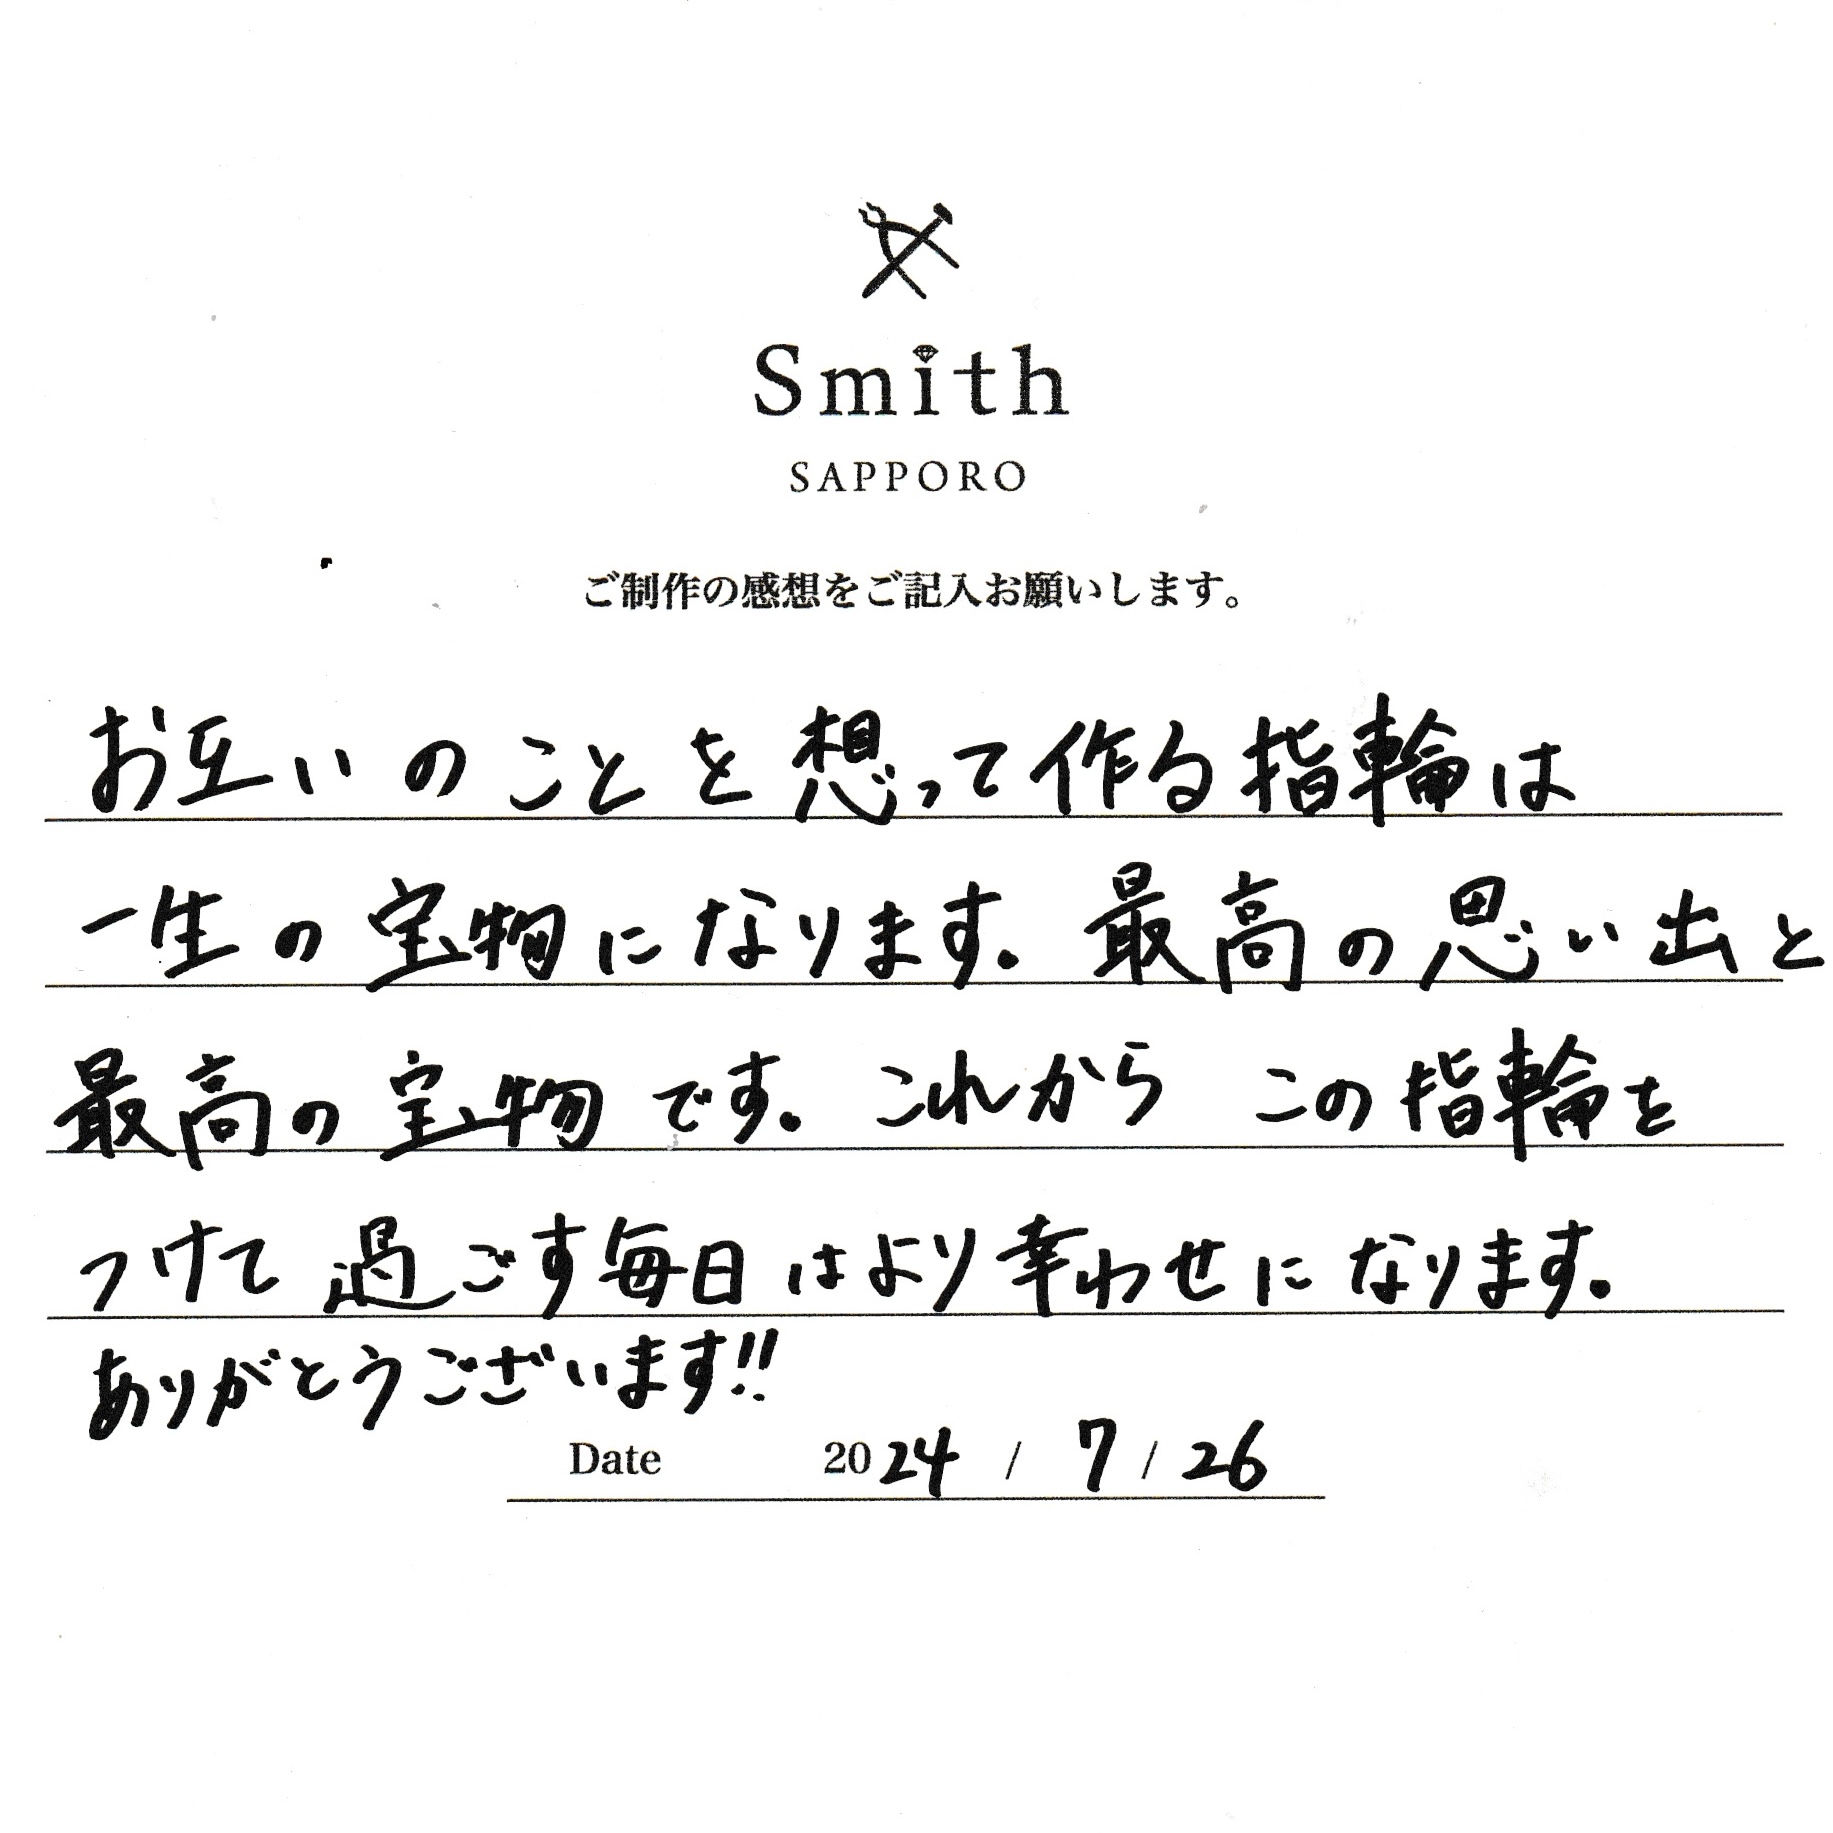 Smith
SAPPORO
ご制作の感想をご記入お願いします。
お互いのことを想って作る指輪は
一生の宝物になります。最高の思い出と
最高の宝物です。これから この指輪を
つけて過ごす毎日はより幸わせになります。
ありがとうございます!!
Date 2024 / 7 / 26